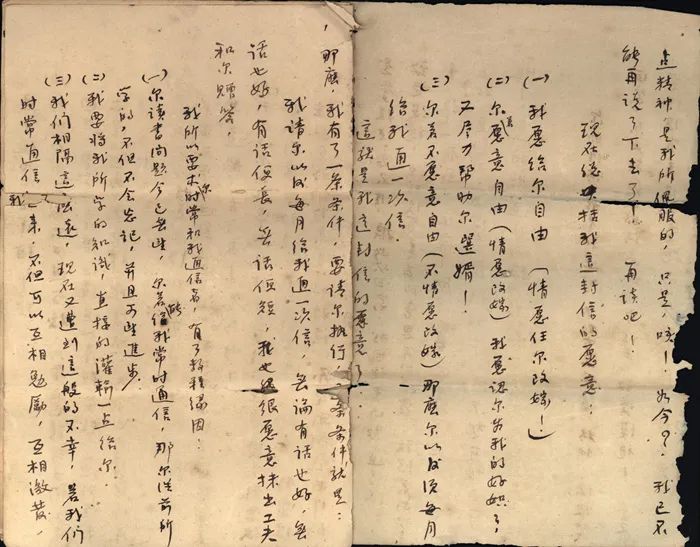 点精神，是我所佩服的，只是，唉！如今？我已不
能再说了下去了！ 再谈吧！
现在总括我这封信的愿意：
(一) 我愿给尔自由（情愿任尔改嫁！）
(二) 尔若愿意自由（情愿改嫁）我愿认尔为我的好妹了，
又尽力帮助尔选婿！
(三) 尔若不愿意自由（不情愿改嫁）那么尔以后须每月
给我通一次信．
这就是我这封信的愿意了．
那么，我有了一条条件，要请尔执行；条条件就是：
我请尔以后每月给我通一次信，无论有话也好，无
话也好，有话便长，无话便短，我也很愿意抹出工夫
和尔赠答．
我所以要求尔时常和我通信者，有了数种缘因：
(一) 尔读书尚距今已些，尔若能给我常时通信，那尔从前所
学的，不但不会忘记，并且可些进步．
(二) 我要将我所学的知识，直接的灌输一点给尔．
(三) 我们相隔这么远，现在又遭到这般的不幸，若我们
时常通信来，不但可以互相勉励，互相激发，